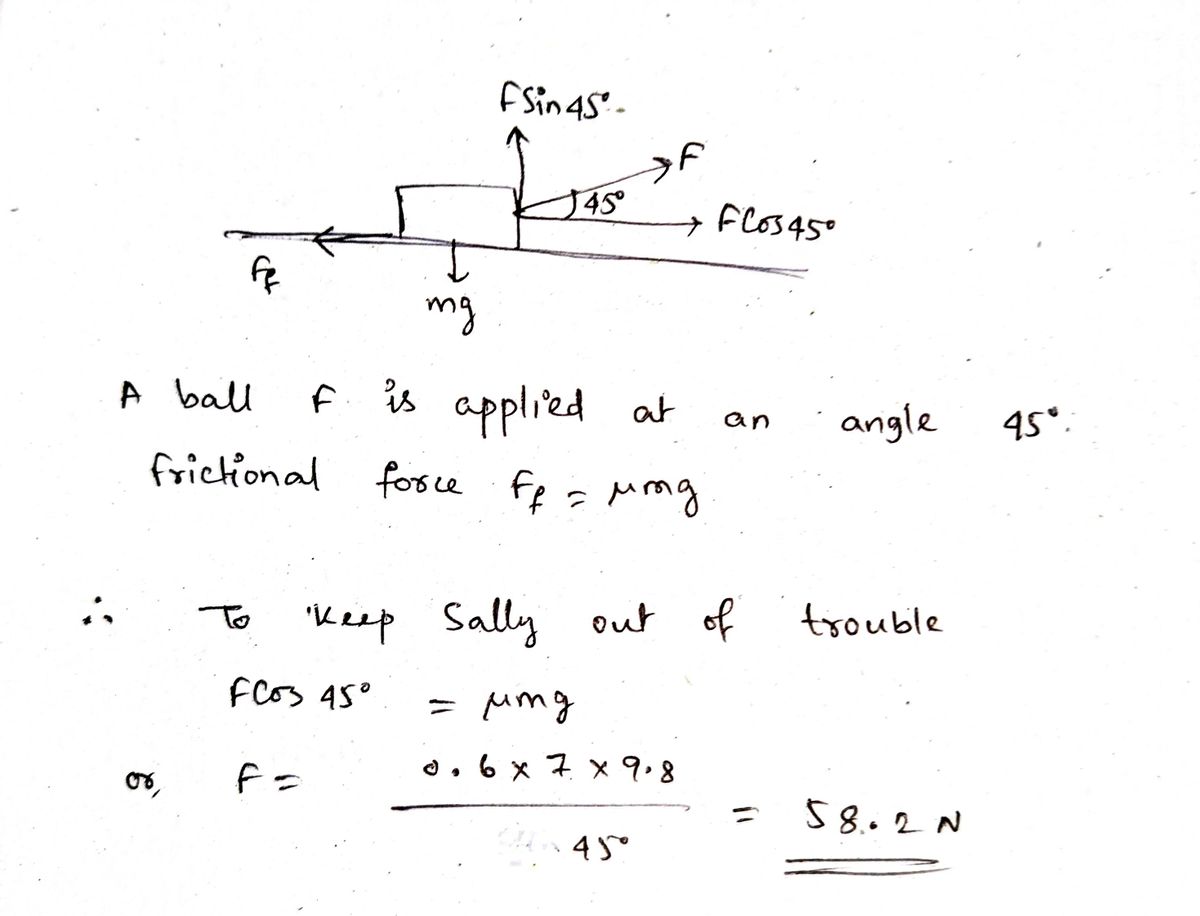 F Sin 45°
F
45°
F Cos 45°
Ff
mg
A ball F is applied at an angle 45°.
frictional force Ff = μmg
∴ To keep Sally out of trouble
F Cos 45° = μmg
or, F = 0.6 x 7 x 9.8
45°
= 58.2 N